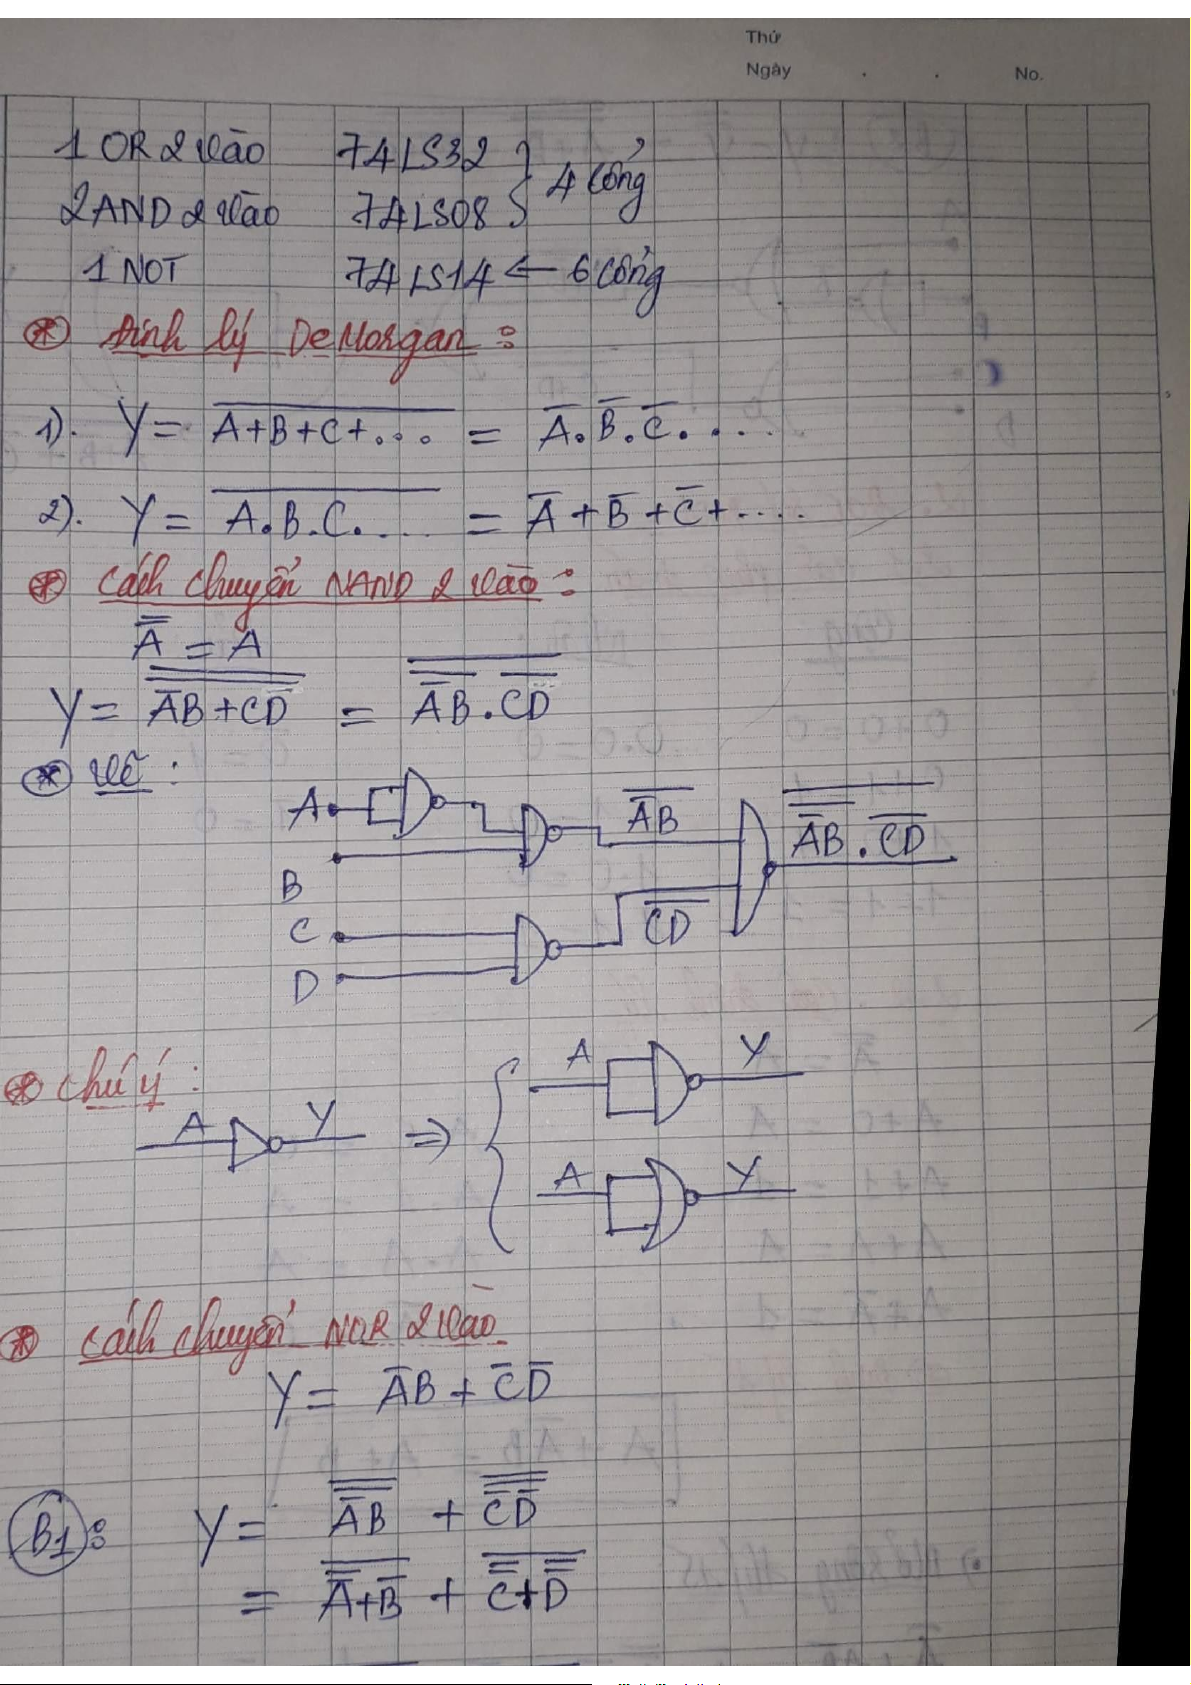 Thứ
Ngày . . No.
1 OR 2 vào 74LS32 } 4 cổng
2 AND 2 vào 74LS08
1 NOT 74LS14 ← 6 cổng
⊛ Định lý DeMorgan :
1). Y = \overline{A+B+C+...} = \overline{A}.\overline{B}.\overline{C}.....
2). Y = \overline{A.B.C....} = \overline{A}+\overline{B}+\overline{C}+....
⊛ Cách chuyển NAND 2 vào :
\overline{\overline{A}} = A
Y = \overline{\overline{\overline{A}B+C\overline{D}}} = \overline{\overline{\overline{A}B}.\overline{CD}}
⊛ Vẽ :
A
\overline{\overline{A}B}
\overline{\overline{\overline{A}B}.\overline{CD}}
B
C
\overline{CD}
D
⊛ Chú ý :
A Y
A Y ⇒
A Y
⊛ Cách chuyển NOR 2 vào
Y = \overline{A}B + \overline{C}\overline{D}
B1: Y = \overline{\overline{\overline{A}B}} + \overline{\overline{\overline{C}\overline{D}}}
= \overline{\overline{\overline{A}}+\overline{B}} + \overline{\overline{\overline{C}}+\overline{\overline{D}}}